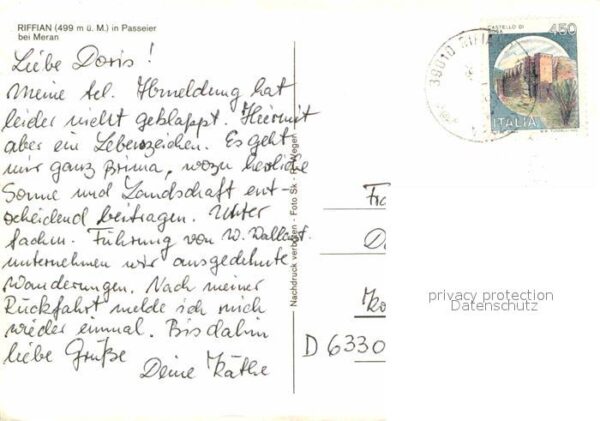 RIFFIAN (499 m ü. M.) in Passeier
bei Meran
Liebe Doris!
Meine tel. Abmeldung hat
leider nicht geklappt. Hiermit
aber ein Lebenszeichen. Es geht
mir ganz prima, wozu herrliche
Sonne und Landschaft ent-
scheidend beitragen. Unter
fachm. Führung von W.
unternehmen wir ausgedehnte
Wanderungen. Nach meiner
Rückfahrt melde ich mich
wieder einmal. Bis dahin
liebe Grüße
Deine Käthe
Nachdruck verboten - Foto Sk
CASTELLO DI
450
ITALIA
39010 RIFIA
Fra
D 6330
privacy protection
Datenschutz